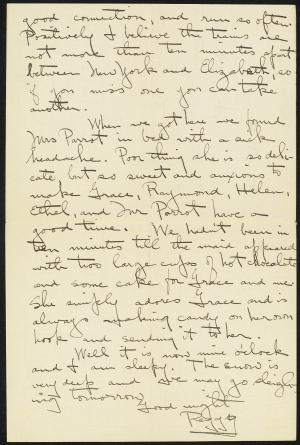 good connection, and run so often.
Positively I believe the trains are
not more than ten minutes apart
between New York and Elizabeth, so
if you miss one you can take
another.
When we got here we found
Mrs Parrot in bed with a sick
headache. Poor thing she is so deli-
cate but so sweet and anxious to
make Grace, Raymond, Helen,
Ethel, and Mr Parrot have a
good time. We hadn't been in
ten minutes till the maid appeared
with two large cups of hot chocolate
and some cake for Grace and me.
She simply adores Grace and is
always making candy on her own
hook and sending it to her.
Well it is now nine o'clock
and I am sleepy. The snow is
very deep and we may go sleigh-
ing tomorrow.
Good night
Peggy